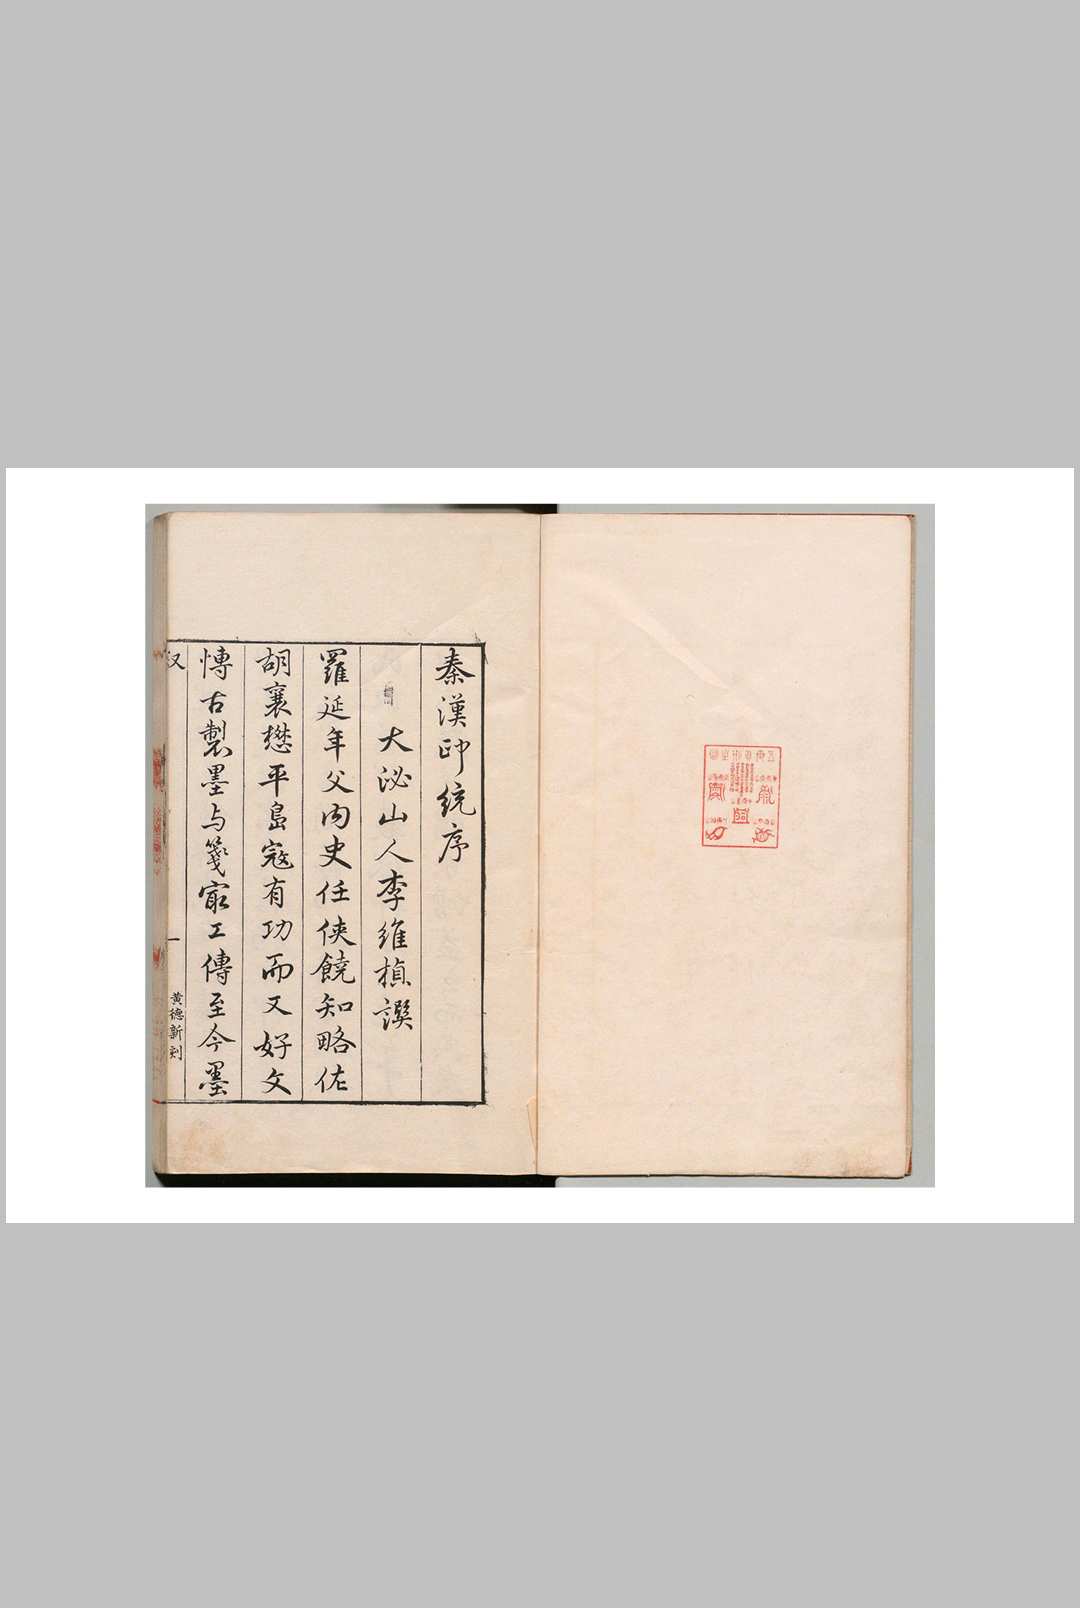 秦漢印統序
大泌山人李維楨譔
羅延年父内史任俠饒知略佐
胡襄懋平島寇有功而又好文
愽古製墨与箋㝡工傳至今墨
汉
一
黄德新刻